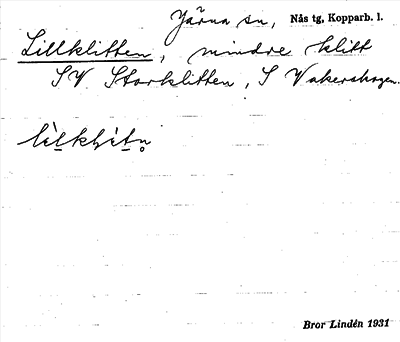 Järna sn, Nås tg, Kopparb. l.
Lillklitten, mindre klitt
SV Storklitten, S Vakerskogen.
Bror Lindén 1931